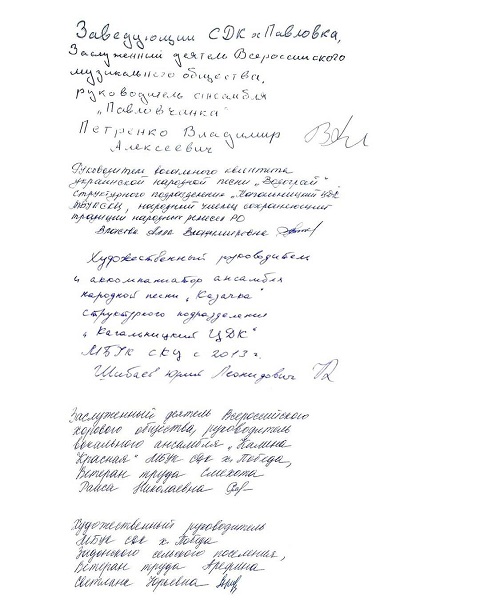 Заведующий СДК х Павловка,
Заслуженный деятель Всероссийского
музыкального общества,
руководитель ансамбля
"Павловчанка"
Петренко Владимир
Алексеевич
Руководитель вокального квинтета
украинской народной песни "Водограй"
структурного подразделения "Кагальницкий ЦДК"
МБУК СКЦ, народный умелец сохраняющий
традиции народных ремесел РО
Власова Алла Владимировна
Художественный руководитель
и аккомпаниатор ансамбля
народной песни "Казачка"
структурного подразделения
"Кагальницкий ЦДК"
МБУК СКЦ с 2013 г.
Шибаев Юрий Леонидович
Заслуженный деятель Всероссийского
хорового общества, руководитель
вокального ансамбля "Калина
Красная" МБУК СДК х. Победа,
Ветеран труда
Раиса Николаевна
Художественный руководитель
МБУК СДК х. Победа
сельского поселения,
Ветеран труда Арефина
Светлана Юрьевна